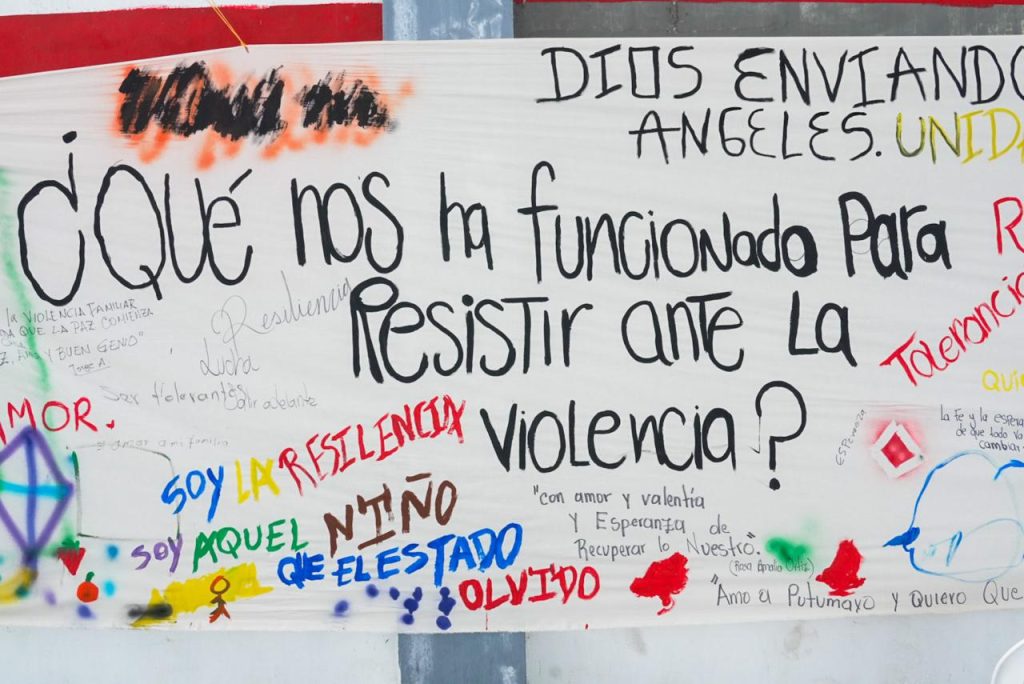 DIOS ENVIANDO
ANGELES. UNIDA
¿QUÉ nos ha funcionado Para
Resistir ante La
violencia?
la VIOLENCIA FAMILIAR
QUE LA PAZ COMIENZA
Y BUEN GENIO"
Resiliencia
Lucha
Ser tolerantes
Salir adelante
amar a mi familia
AMOR.
SOY LA RESILENCIA
SOY AQUEL NIÑO
QUE EL ESTADO
OLVIDO
"con amor y valentía
y Esperanza de
Recuperar lo Nuestro".
(Rosa Amalia Ortiz)
"Amo el Putumayo y Quiero Que
R
Tolerancia
QUI
ESPERANZA
la Fe y la espera
de que todo va
cambiar